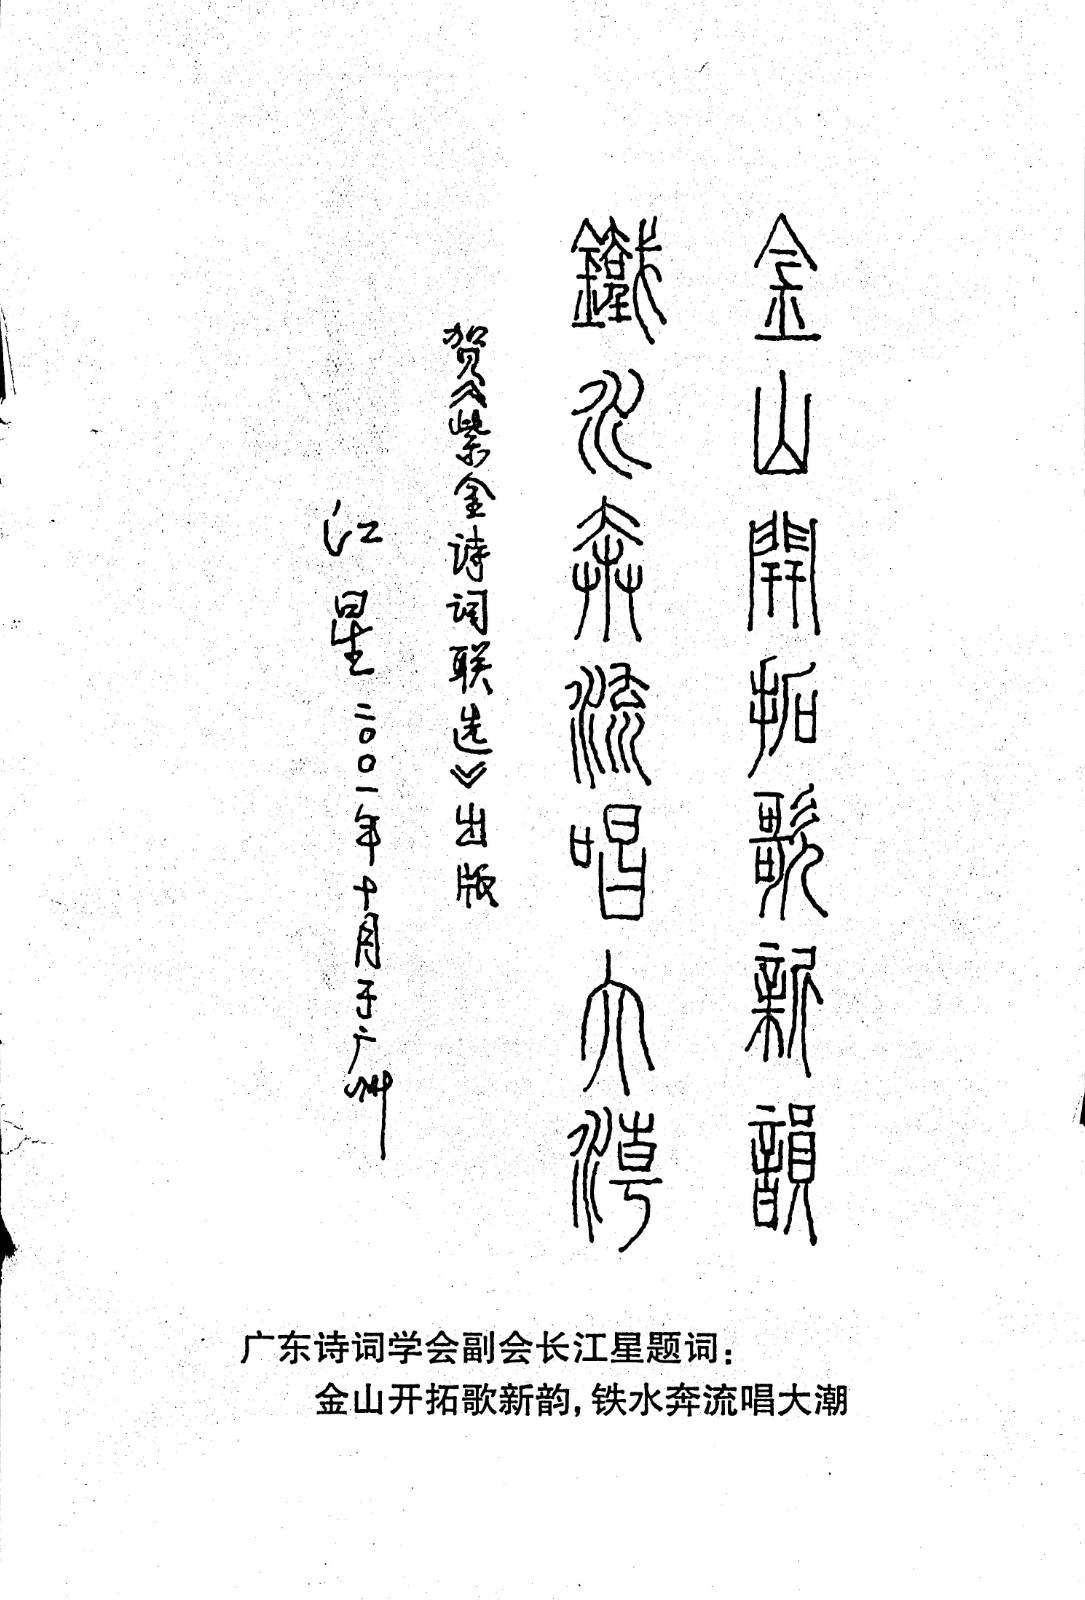 金山開拓歌新韻
鐵水奔流唱大潮
贺《紫金诗词联选》出版
江星 二〇〇一年十月于广州
广东诗词学会副会长江星题词：
金山开拓歌新韵，铁水奔流唱大潮